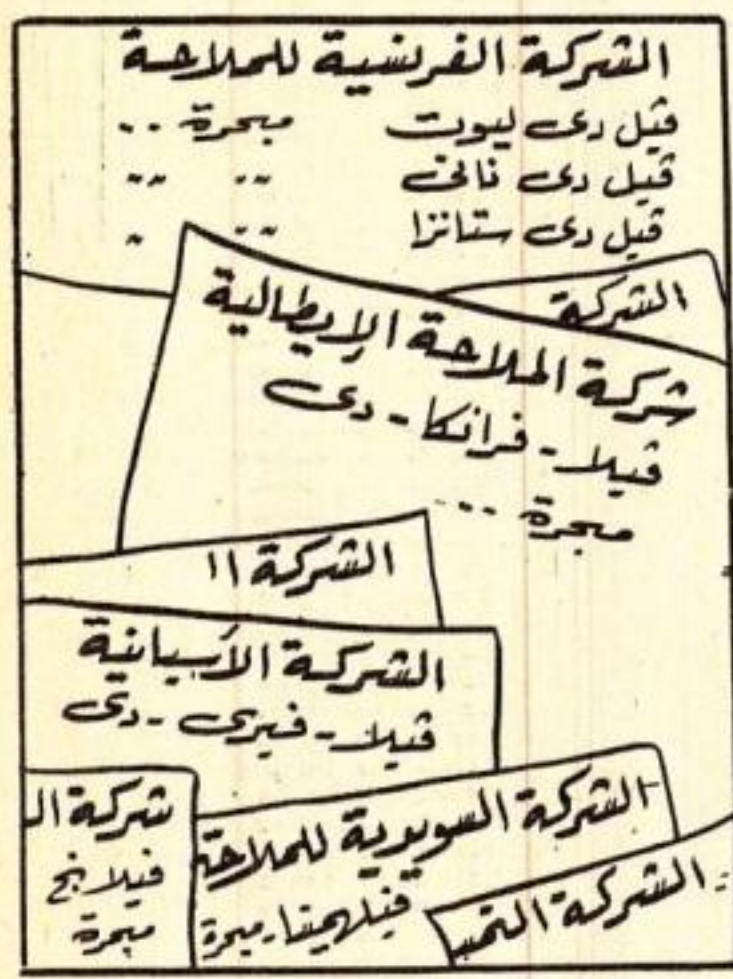 الشركة الفرنسية للملاحة
ڤيل دى ليوت مبحرة ..
ڤيل دى نالى .. ..
ڤيل دى ستانزا .. ..
الشركة
شركة الملاحة الإيطالية
ڤيلا - فرانكا - دى
مبحرة ...
الشركة اا
الشركة الأسبانية
ڤيلا - فيرى - دى
شركة ال
فيلانج
مبحرة
الشركة السويدية للملاحة
ڤيلهمينا - مبحرة
الشركة